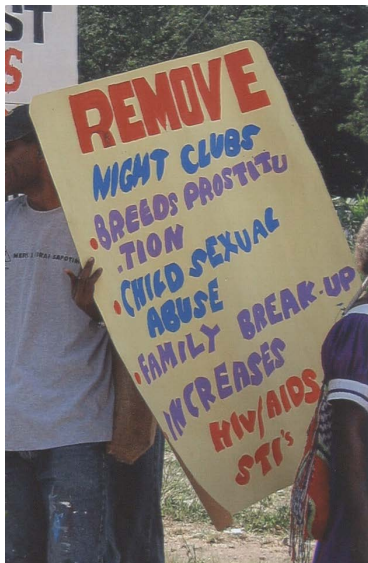 ST
S
REMOVE
NIGHT CLUBS
• BREEDS PROSTITU
• TION
• CHILD SEXUAL
ABUSE
• FAMILY BREAK-UP
INCREASES
HIV/AIDS
STI's